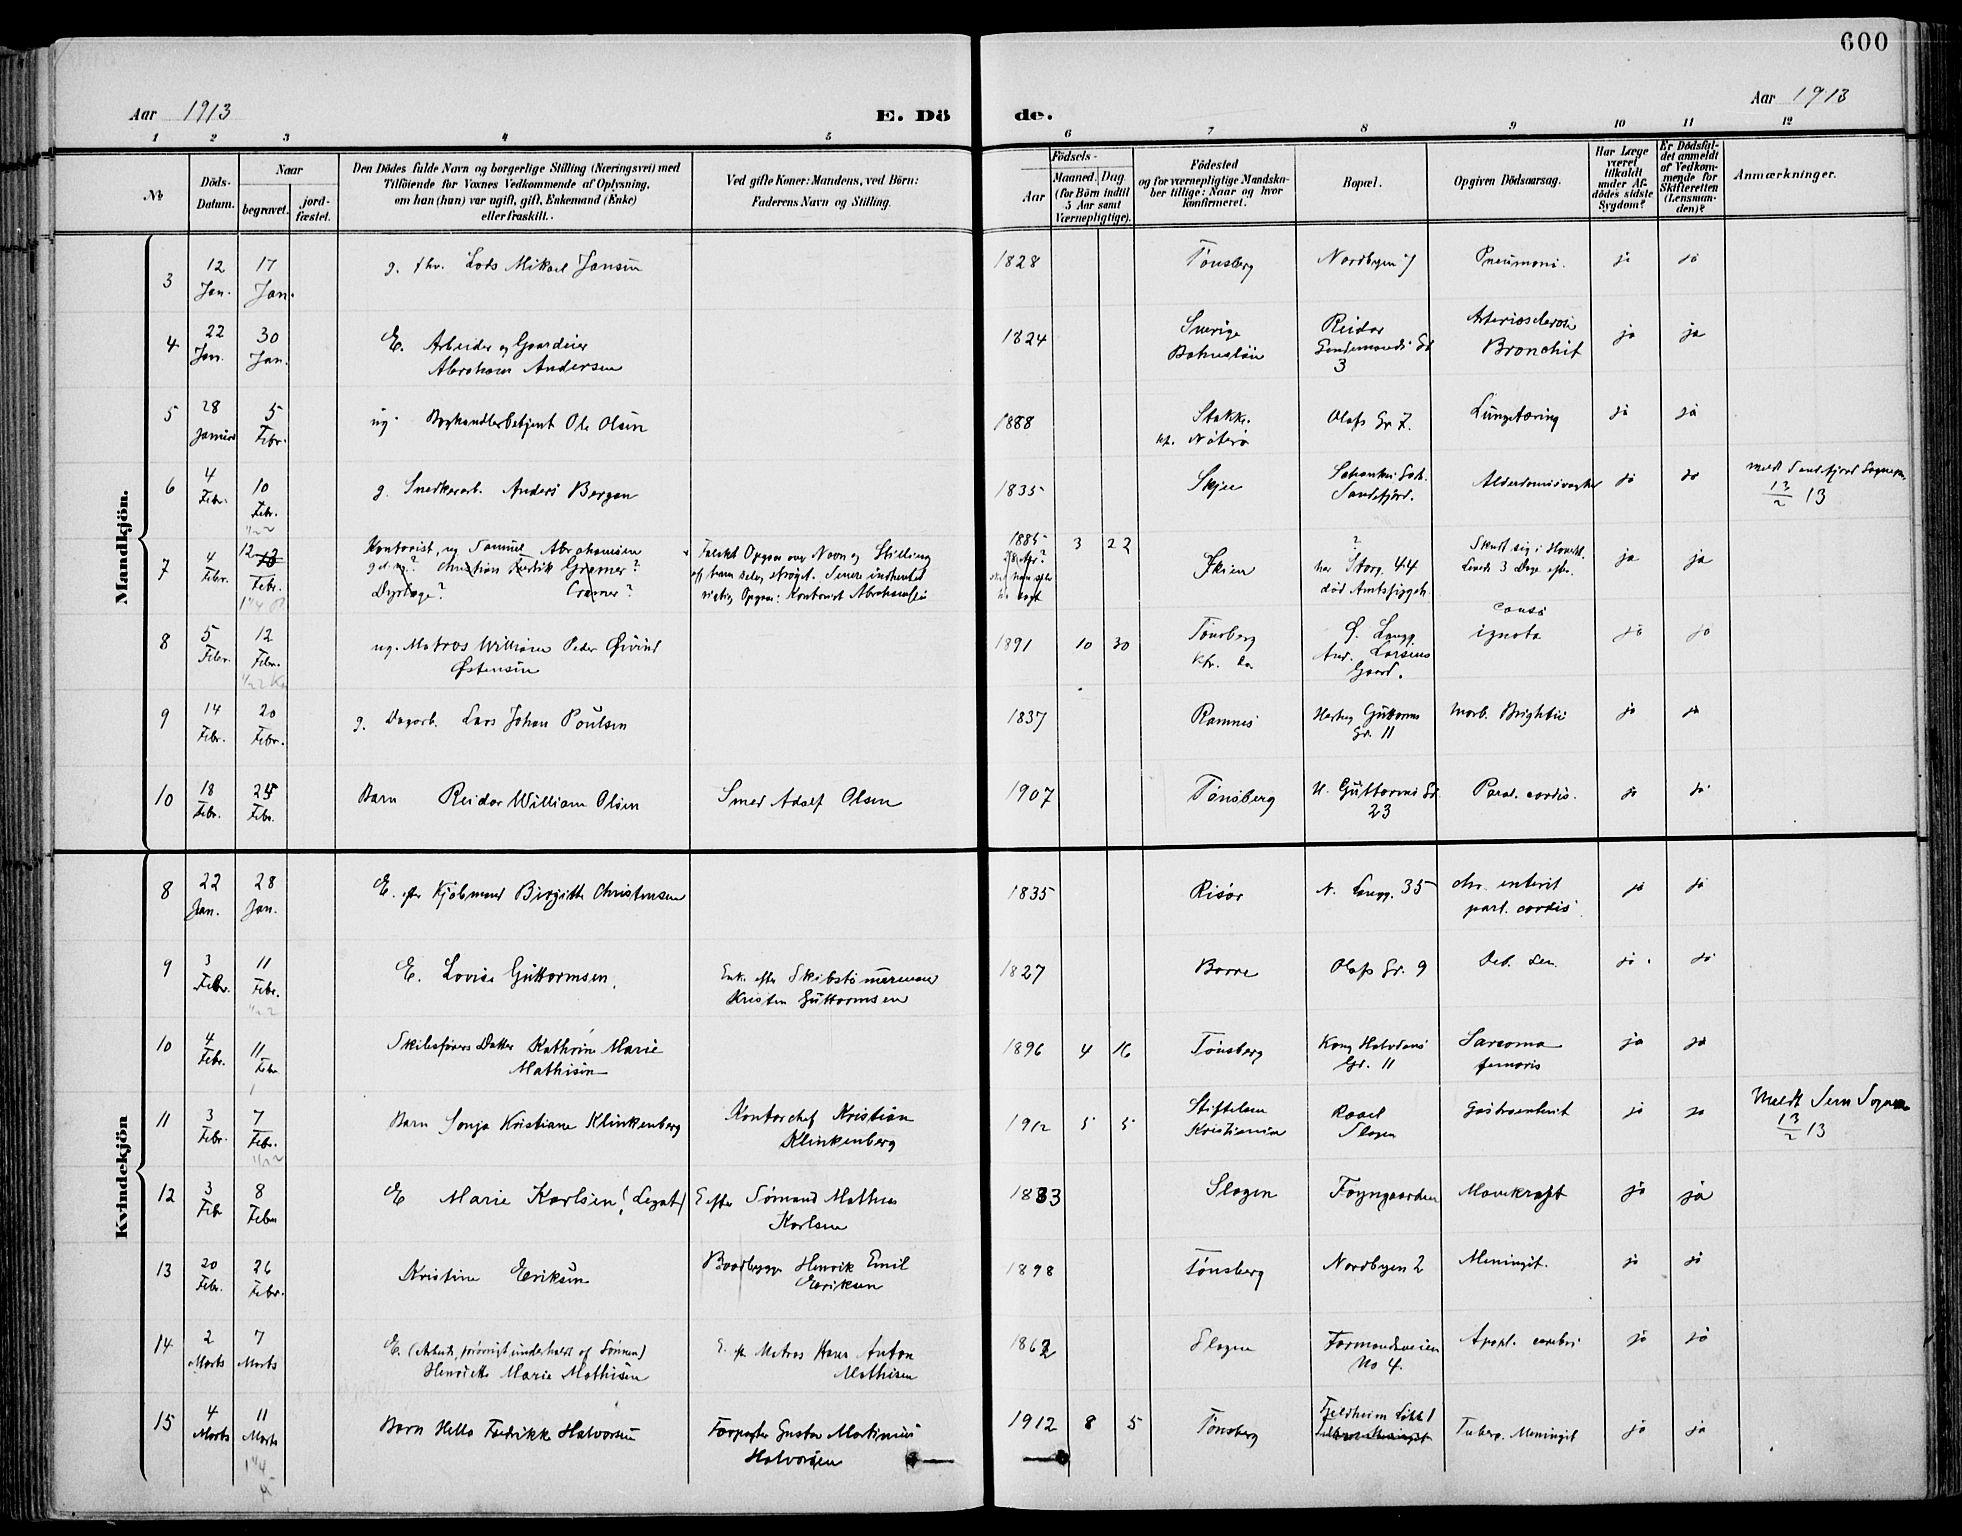 600
Aar 1913
E. Dö
de.
Aar 1913
1 2 3 4 5 6 7 8 9 10 11 12
No
Döds-Datum.
Naar
begravet.
jordfæstet.
Den Dödes fulde Navn og borgerlige Stilling (Næringsvei) med
Tilföiende for Voxnes Vedkommende af Oplysning,
om han (hun) var ugift, gift, Enkemand (Enke)
eller fraskilt.
Ved gifte Koner: Mandens, ved Börn:
Faderens Navn og Stilling.
Födsels-
Aar
Maaned. Dag
(for Börn indtil
5 Aar samt
Værnepligtige).
Födested
og for værnepligtige Mandska-
ber tillige: Naar og hvor
konfirmeret.
Bopæl.
Opgiven Dödsaarsag.
Har Læge
været
tilkaldt
under Af-
dödes sidste
Sygdom?
Er Dödsfal-
det anmeldt
af Vedkom-
mende for
Skifteretten
(Lensman-
den)?
Anmærkninger.
Mandkjön.
3 12 Jan. 17 Jan. g. fhv. Lods Mikael Jansen 1828 Tönsberg Nordbyen Pneumoni. ja ja
4 22 Jan. 30 Jan. E. Arbeider og Gaardeier
Abraham Andersen 1824 Sverige
Bohuslän Reidar
3 Arteriosclerose
Bronchit ja ja
5 28 Januar 5 Febr. ug. Ole Olsen 1888 Stokke
kf. Nöterö Olafs Gr 7. Lungetæring ja ja
6 4 Febr. 10 Febr. g. Snedkerarb. Anders Bergan 1835 Skjee Sandefjord. ja ja Meldt Sandefjord Sognepr.
13/2 13
7 4 Febr. 12 Febr. Kontorist, ug Samuel Abrahamsen
Christian Fredrik Gramer?
Dyrlæge? Cramer?
Falskt Opgave over Navn og Stilling
af ham selv strøget. Senere indhentet
rigtig Opgave: Kontorist Abrahamsen
1885 3 22 Skien Storg. 44
död Amtssygeh. Skudt sig i Hovedet.
Levede 3 Dage efter. ja ja
8 5 Febr. 12 Febr. ug. Matros William Peder Öivind
Östensen 1891 10 30 Tönsberg
kfr. do Ö. Langg.
And. Larsens
Gaard. causa
ignota ja ja
9 14 Febr. 20 Febr. g. Dagarb. Lars Johan Poulsen 1837 Ramnes Hertug Guttorms
Gr. 11 Morb. Brightii ja ja
10 18 Febr. 25 Febr. Barn Reidar William Olsen Smed Adolf Olsen 1907 Tönsberg H. Guttorms Gd.
23 Paral. cordis. ja ja
Kvindekjön
8 22 Jan. 28 Jan. E. efter Kjöbmand Birgitte Christensen 1835 Risör N. Langg. 35 chr. enterit
paral. cordis ja ja
9 3 Febr. 11 Febr. E. Lovise Guttormsen, Enke efter Skibstömmermand
Kristen Guttormsen 1827 Borre Olafs Gr. 9 Deb. sen. ja ja
10 4 Febr. 11 Febr Skibsförers Datter Kathrine Marie
Mathisen 1896 4 16 Tönsberg Kong Halvdans
Gr. 11 Sarcoma
femoris ja ja
11 3 Febr. 7 Febr. Barn Sonja Kristiane Klinkenberg Kontorchef Kristian
Klinkenberg 1912 5 5 Stiftelsen
Kristiania Roael
Slagen Gastroenterit ja ja Meldt Sem Sognepr.
13/2 13
12 3 Feb 8 Febr E Marie Karlsen (Legat) E efter Sömand Mathias
Karlsen 1833 Slagen Foyngaarden Mavekræft ja ja
13 20 Febr. 26 Febr. Kristine Eriksen Baadbygger Henrik Emil
Eriksen 1898 Tönsberg Nordbyen 2 Meningit. ja ja
14 2 Marts 7 Marts E. (Arbeide, forövrigt underholdt af Sönnen)
Henriette Marie Mathisen E. efter Matros Hans Anton
Mathisen 1862 Slagen Formandsveien
No 4. Apopl. cerebri ja ja
15 4 Marts 11 Marts Barn Hello Fredrikke Halvorsen Forpagter Gustav Martinius
Halvorsen 1912 8 5 Tönsberg Fjeldheim Tuberc. Meningit ja ja